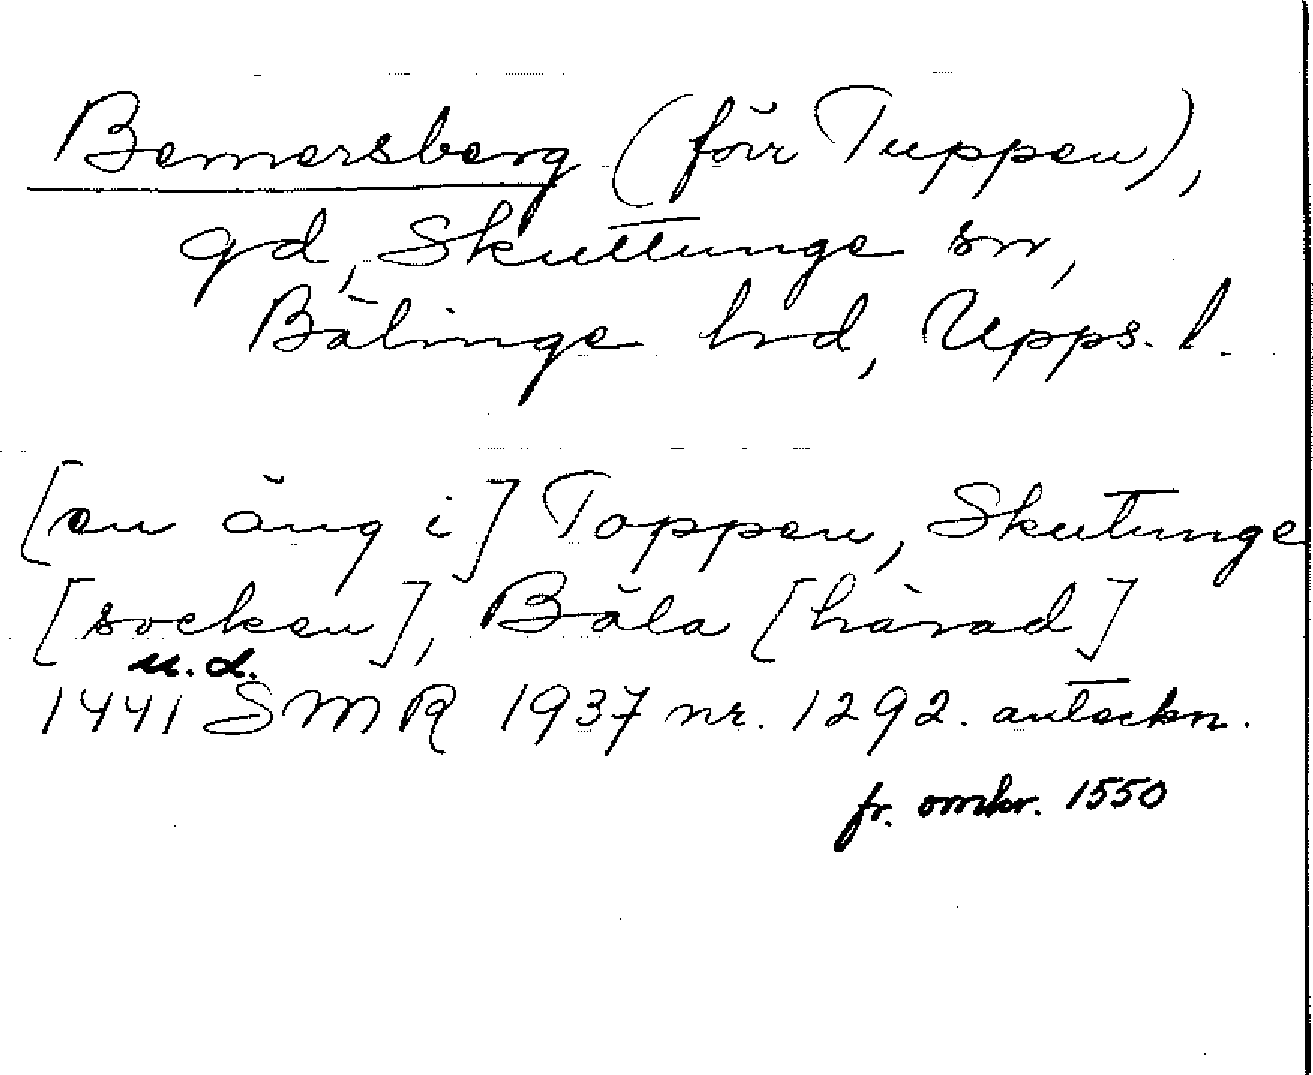 Bemersberg (förr Tuppen),
gd, Skuttunge sn,
Bälinge hrd, Upps. l.
[en äng i] Toppen, Skutunge
[socken], Bäla [härad]
u.d.
1441 SMR 1937 nr. 1292. anteckn.
fr. omkr. 1550